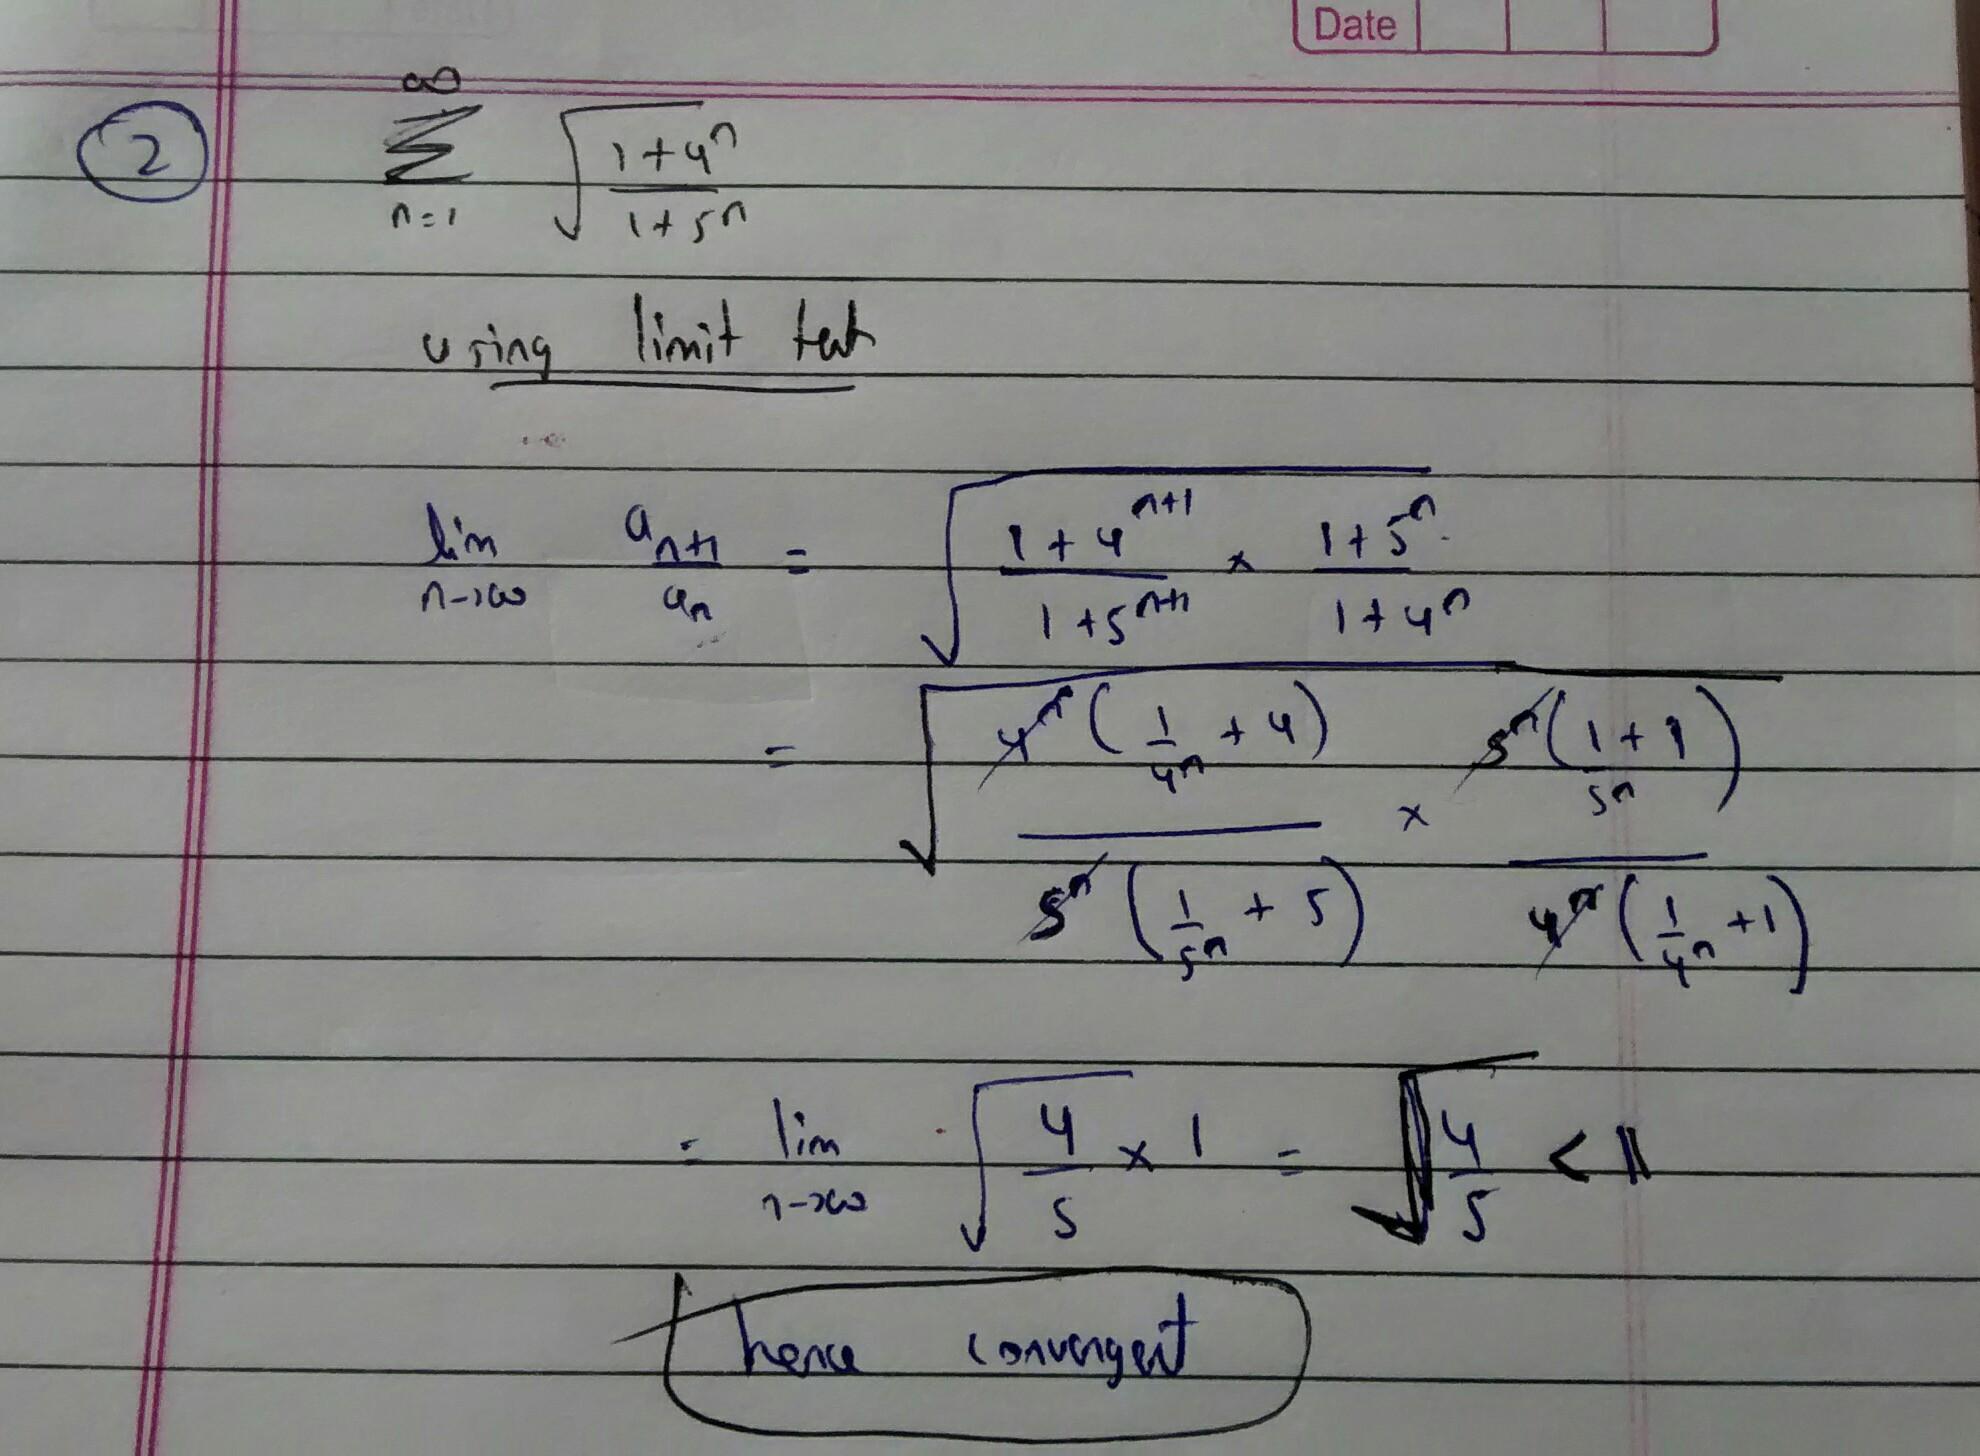 Date
2
∞
∑ √(1+4^n / 1+5^n)
n=1
using limit test
lim n→∞ a_{n+1} / a_n = √(1+4^{n+1} / 1+5^{n+1} × 1+5^n / 1+4^n)
= √(4^n (1/4^n + 4) / 5^n (1/5^n + 5) × 5^n (1/5^n + 1) / 4^n (1/4^n + 1))
= lim n→∞ √(4/5 × 1) = √(4/5) < 1
hence convergent